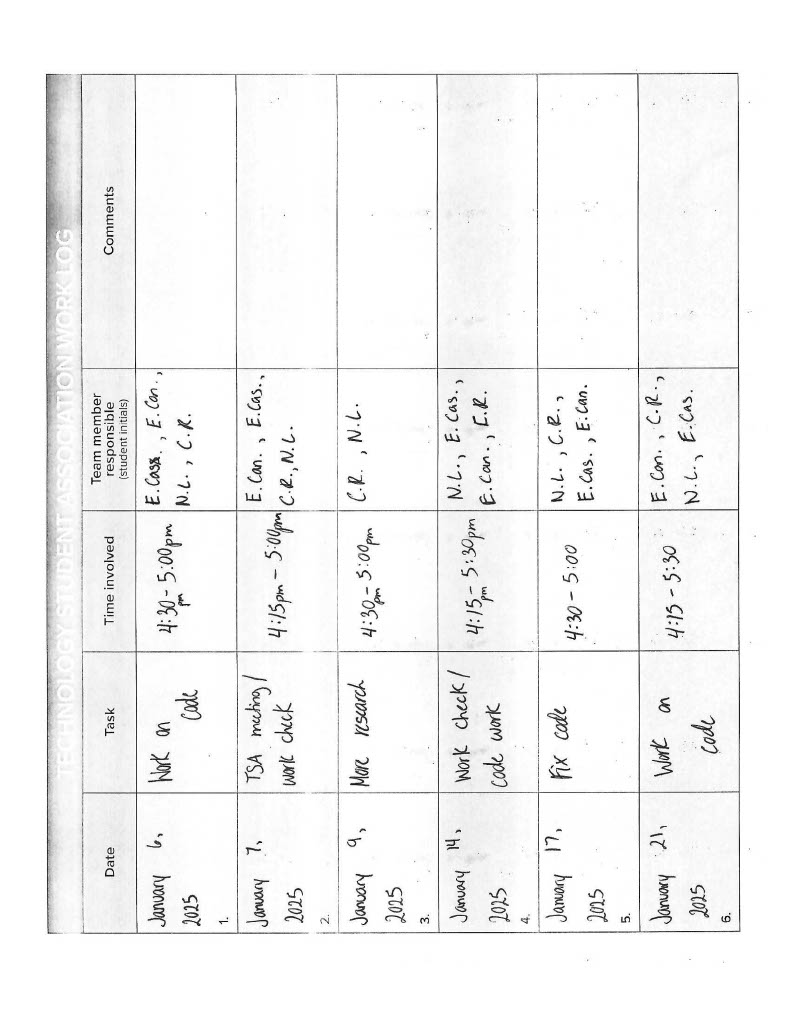 TECHNOLOGY STUDENT ASSOCIATION WORK LOG
Date
Task
Time involved
Team member
responsible
(student initials)
Comments
January 6,
2025
1.
Work on
code
4:30 - 5:00pm
pm
E.Cass., E.Can.,
N.L., C.R.
January 7,
2025
2.
TSA meeting/
work check
4:15pm - 5:00pm
E.Can., E.Cas.,
C.R., N.L.
January 9,
2025
3.
More research
4:30 - 5:00pm
pm
C.R., N.L.
January 14,
2025
4.
Work check/
code work
4:15 - 5:30pm
pm
N.L., E.Cas.,
E.Can., E.R.
January 17,
2025
5.
Fix code
4:30 - 5:00
N.L., C.R.,
E.Cas., E.Can.
January 21,
2025
6.
Work on
code
4:15 - 5:30
E.Can., C.R.,
N.L., E.Cas.